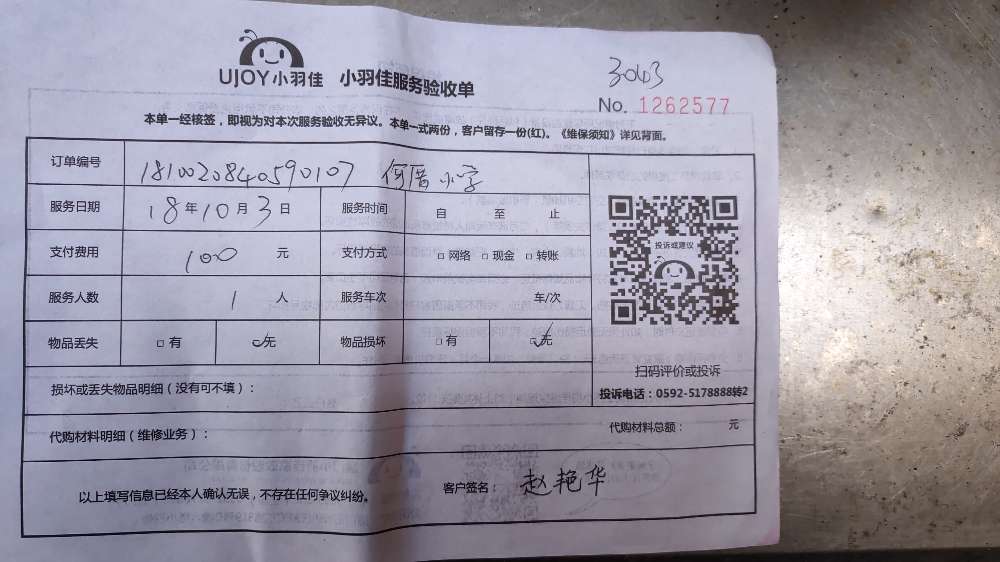 3043
UJOY小羽佳 小羽佳服务验收单
No. 1262577
本单一经核签，即视为对本次服务验收无异议。本单一式两份，客户留存一份(红)。《维保须知》详见背面。
订单编号 1810020840590107 何厝小学
服务日期 18年10月3日 服务时间 自 至 止
支付费用 100 元 支付方式 □网络 □现金 □转账
服务人数 1 人 服务车次 车/次
物品丢失 □有 ☑无 物品损坏 □有 ☑无
投诉或建议
扫码评价或投诉
投诉电话：0592-5178888转2
损坏或丢失物品明细（没有可不填）：
代购材料明细（维修业务）： 代购材料总额： 元
以上填写信息已经本人确认无误，不存在任何争议纠纷。 客户签名： 赵艳华